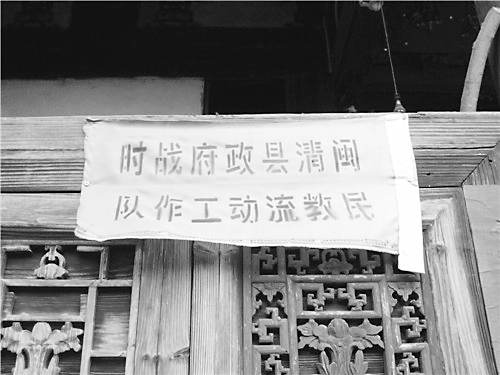 闽清县政府战时
民教流动工作队